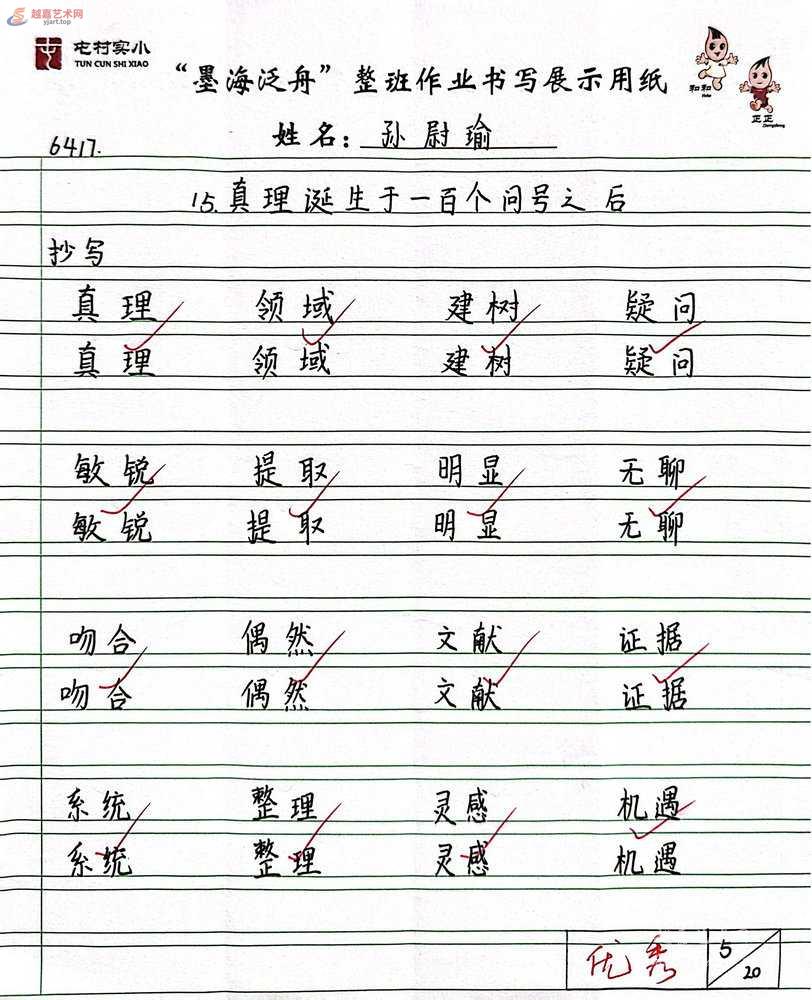 越嘉艺术网
yjart.top
屯村实小
TUN CUN SHI XIAO
“墨海泛舟”整班作业书写展示用纸
和和
Hehe
正正
Zhengzheng
6417.
姓名：孙尉瑜
15.真理诞生于一百个问号之后
抄写
真理 领域 建树 疑问
真理 领域 建树 疑问
敏锐 提取 明显 无聊
敏锐 提取 明显 无聊
吻合 偶然 文献 证据
吻合 偶然 文献 证据
系统 整理 灵感 机遇
系统 整理 灵感 机遇
优秀 5/20